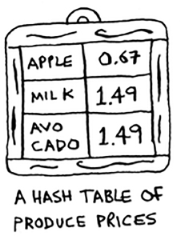 APPLE 0.67
MILK 1.49
AVO
CADO 1.49
A HASH TABLE OF
PRODUCE PRICES